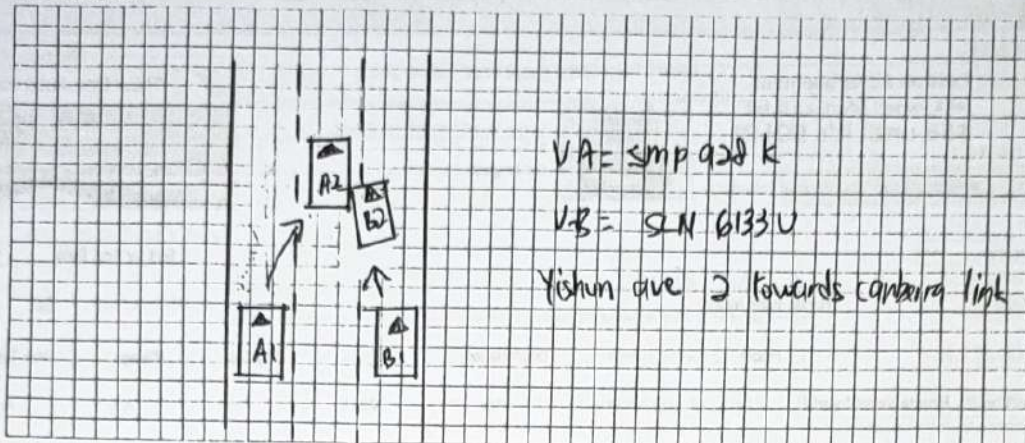 A2
B2
A1
B1
VA = smp 928 K
VB = SLN 6133U
Yishun ave 2 towards canberra link